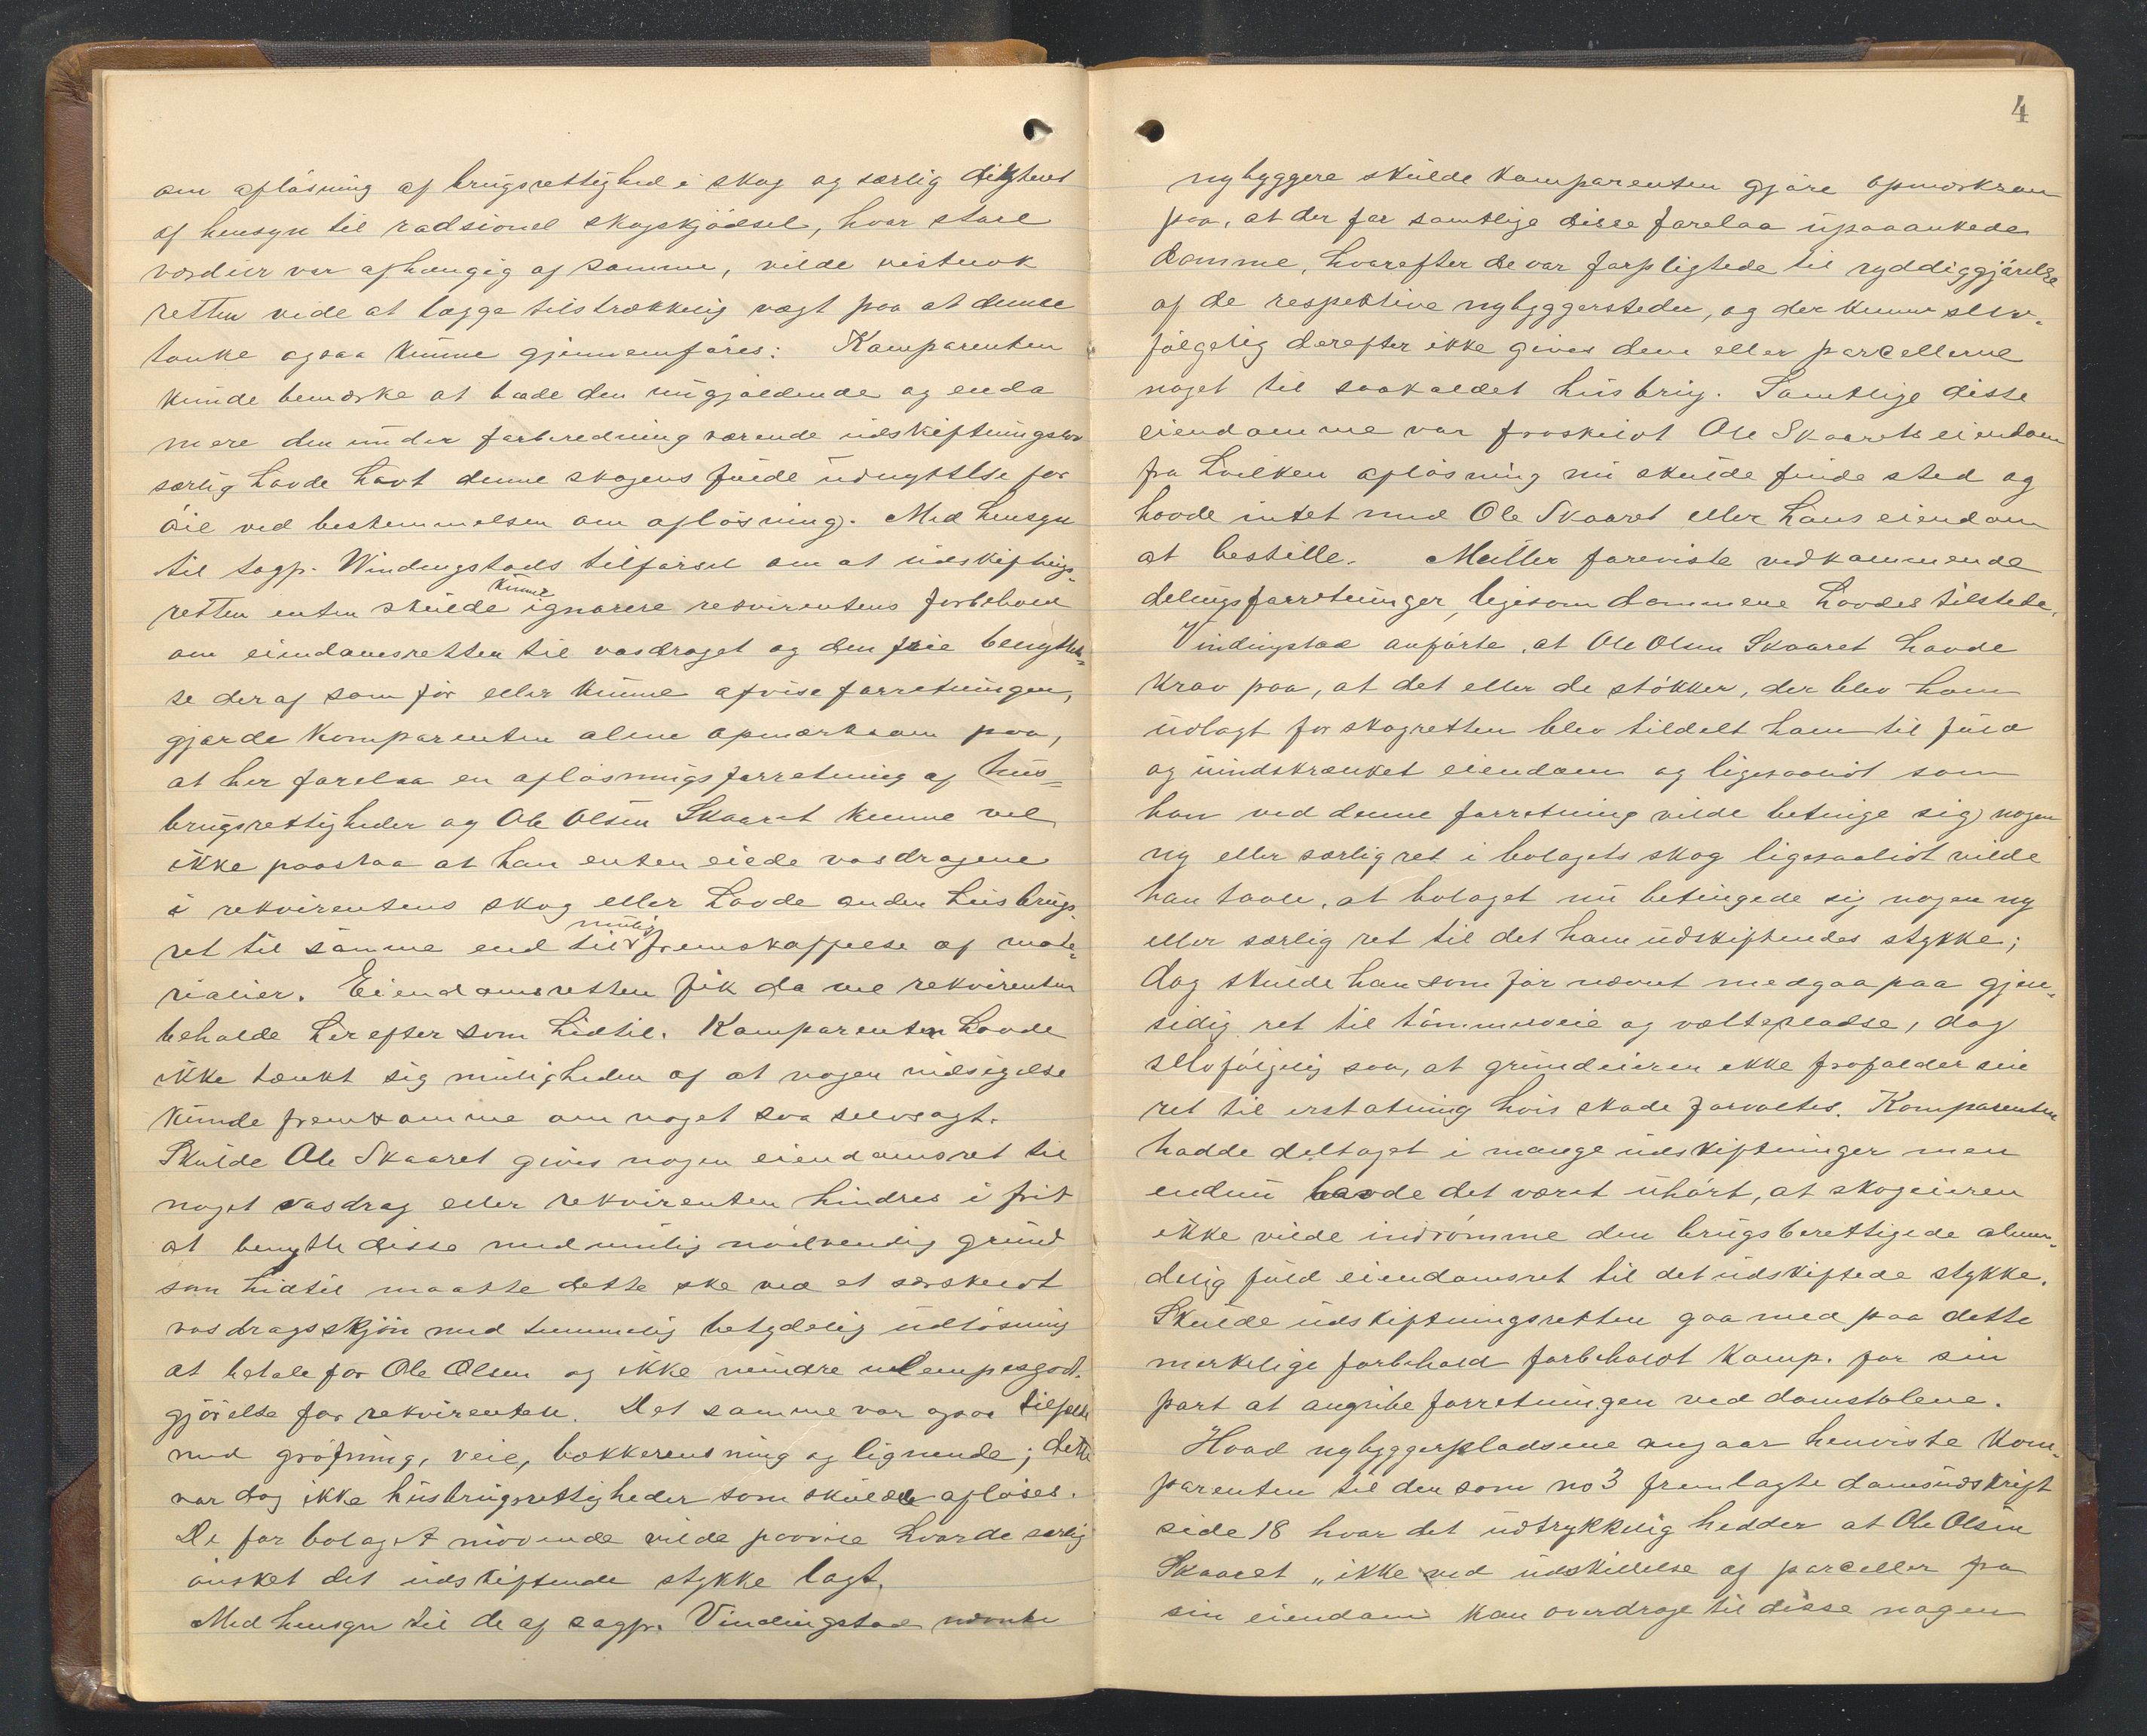 om aflösning af brugsrettighed i skog og særlig digteret
af hensyn til radsionel skogskjödsel, hvor store
værdier var afhængig af samme, vilde vistnok
retten vide at lægge tilstrækkelig vægt paa at denne
tanke ogsaa kunne gjennemföres: Komparenten
kunde bemærke at baade den nugjældende og enda
mere den under forberedning værende udskiftningslov
særlig havde havt denne skogens fulde udnyttelse for
öie ved bestemmelsen om aflösning. Med hensyn
til sagf. Windingstads tilförsel om at udskiftnings-
retten enten skulde kunne ignorere rekvirentens forbehold
om eiendomsretten til vasdraget og den frie benyttel-
se deraf som för eller kunne afvise forretningen,
gjorde Komparenten alene opmærksom paa,
at her forelaa en aflösningsforretning af hus-
brugsrettigheder og Ole Olsen Skaaret kunne vel
ikke paastaa at han enten eiede vasdragene
i rekvirentens skog eller havde anden husbrugs-
ret til samme end til mulig fremskaffelse af mate-
rialier. Eiendomsretten fik da vel rekvirenten
beholde herefter som hidtil. Komparenten havde
ikke tænkt sig muligheden af at nogen indsigelse
kunde fremkomme om noget saa selvsagt.
Skulde Ole Skaaret gives nogen eiendomsret til
noget vasdrag eller rekvirenten hindres i frit
at benytte disse med mulig nödvendig grund
som hidtil maatte dette ske ved et særskildt
vasdragsskjön med temmelig betydelig udlösning
at betale for Ole Olsen og ikke mindre ulempesgodt-
gjörelse for rekvirenten. Det samme var ogsaa tilfælde
med gröfning, veie, bækkerensning og lignende; dette
var dog ikke husbrugsrettigheder som skulde aflöses.
De for bolaget mödende vilde paavise hvor de særlig
önsket det udskiftende stykke lagt.
Med hensyn til de af sagf. Vindingstad nævnte
4
nybyggere skulde Komparenten gjöre opmærksom
paa, at der for samtlige disse forelaa upaaankede
domme, hvorefter de var forpligtede til ryddiggjörelse
af de respektive nybyggersteder, og der kunne selv-
fölgelig derefter ikke gives dem eller parcellerne
noget til saakaldet husbrug. Samtlige disse
eiendomme var fraskildt Ole Skaarets eiendom
fra hvilken aflösning nu skulde finde sted og
havde intet med Ole Skaaret eller hans eiendom
at bestille. Müller foreviste vedkommende
delingsforretninger, ligesom dommene havdes tilstede.
Vindingstad anförte, at Ole Olsen Skaaret havde
krav paa, at det eller de stökker, der blev ham
udlagt for skogretten blev tildelt ham til fuld
og uindskrænket eiendom og ligesaalidt som
han ved denne forretning vilde betinge sig nogen
ny eller særlig ret i bolagets skog ligesaalidt vilde
han taale, at bolaget nu betingede sig nogen ny
eller særlig ret til det ham udskiftendes stykke;
dog skulde han som för nævnt medgaa paa gjen-
sidig ret til tömmerveie og væltepladse, dog
selvfölgelig saa, at grundeieren ikke frafalder sin
ret til erstatning hvis skade forvoltes. Komparenten
hadde deltaget i mange udskiftninger men
endnu havde det været uhört, at skogeieren
ikke vilde indrömme den brugsberettigede almin-
delig fuld eiendomsret til det udskiftede stykke.
Skulde udskiftningsretten gaa med paa dette
merkelige forbehold forbeholdt Komp. for sin
part at angribe forretningen ved domstolene.
Hvad nybyggerpladsene angaar henviste Kom-
parenten til den som no 3 fremlagte domsudskrift
side 18 hvor det udtrykkelig hedder at Ole Olsen
Skaaret „ikke ved udskillelse af parceller fra
sin eiendom kan overdrage til disse nogen